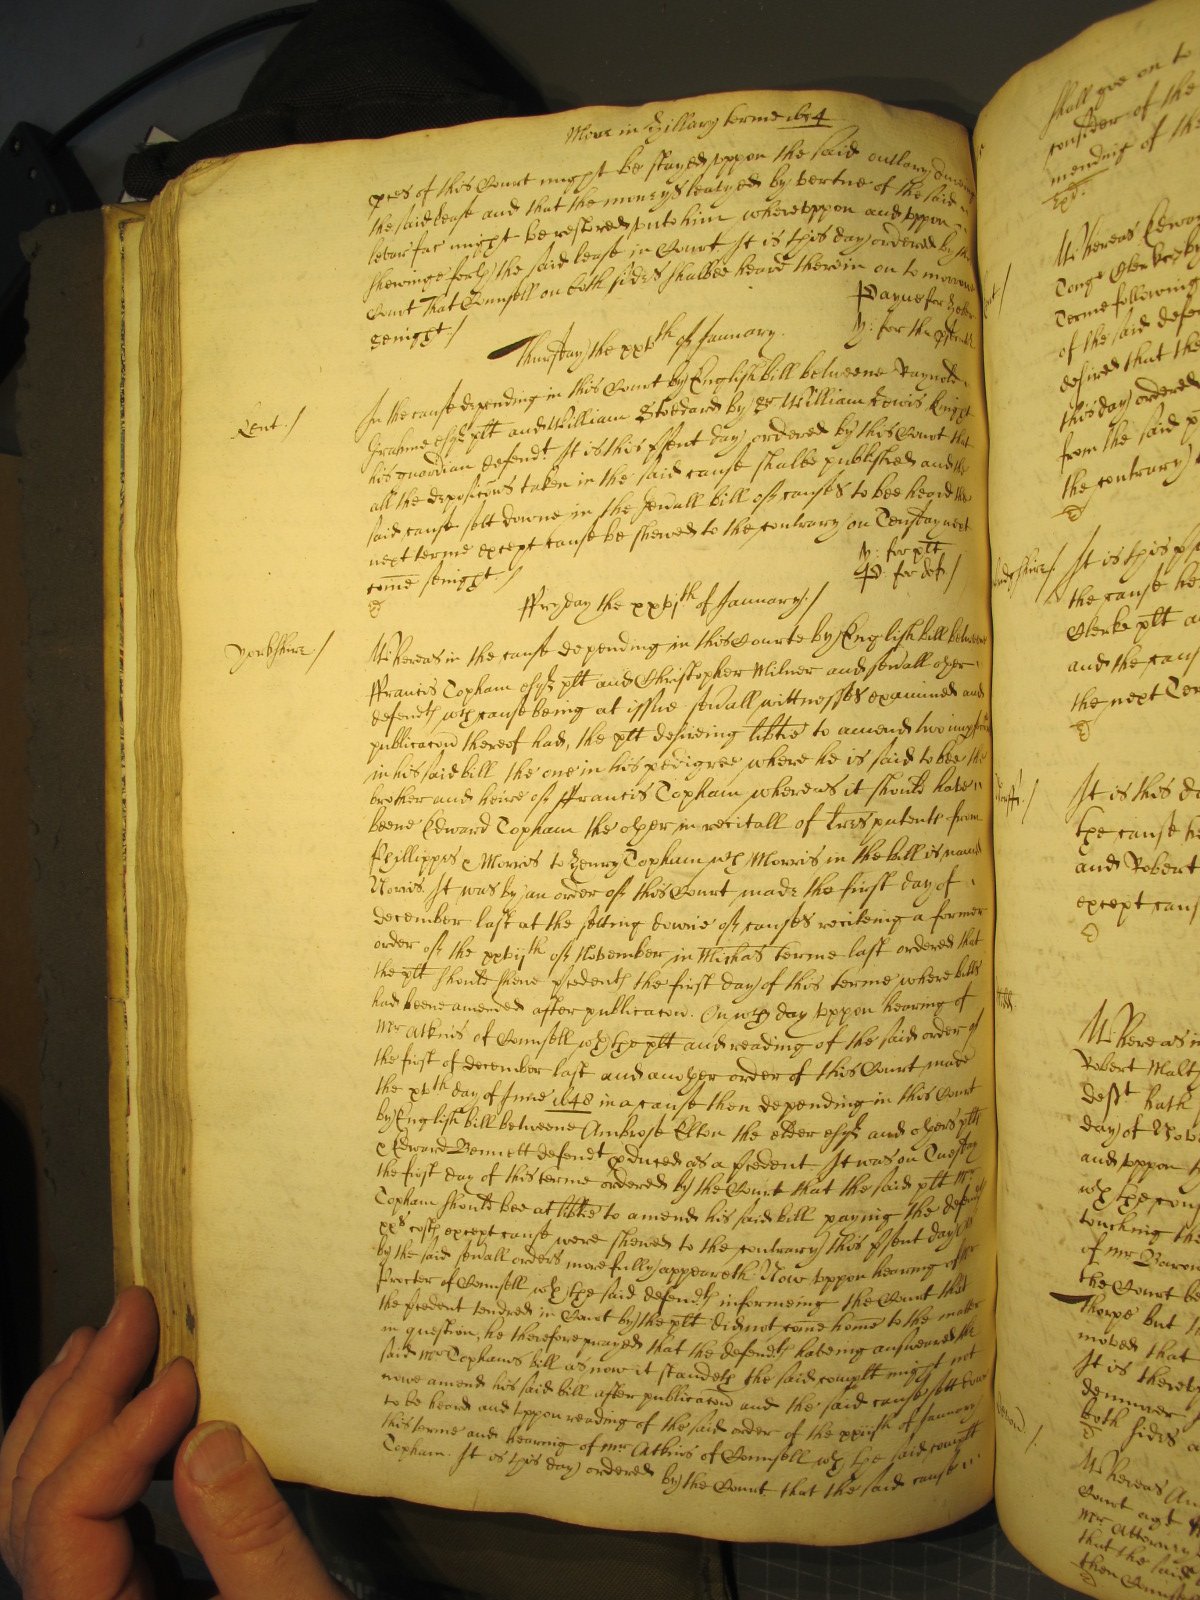 More in Hillary terme 1654
pces of this Court might be stayed uppon the said outlary dureing
the said lease and that the moneys leavyed by vertue of the said
levar fac might be restored unto him whereuppon and uppon
shewinge forth the said lease in Court It is this day ordered by the
Court That Counsell on both sides shalbee heard therein on to morrow
senight /
Payne for
y: for the
Thursday the xxvth of January.
Kent. /
In the cause depending in this Court by English bill betweene Raynold
Grahme esqr plt and William Stoddard by Sr William Lewis knight
his guardian defendt. It is this psent day ordered by this Court that
all the deposicons taken in the said cause shalbe published and the
said cause sett downe in the sevall bill of causes to bee heard the
next terme except cause be shewed to the contrary on Tensday next
come senight. /
y: for plt
P: for def. /
ffryday the xxvjth of January. /
Yorkshire /
Whereas in the cause depending in this Courte by English bill betweene
ffrancis Topham esqr plt and Christopher Milner and sevall other
defendts wch cause being at issue sevall wittnesses examined and
publicacon thereof had, the plt desireing libtie to amend two
in his said bill the one in his pedigree where he is said to bee the
brother and heire of ffrancis Topham whereas it should have
beene Edward Topham the other in recitall of lres patents from
Phillippes & Morris to Henry Topham wch Morris in the bill is named
Norris. It was by an order of this Court made the first day of
december last at the setting downe of causes reciteing a former
order of the xxviijth of November in Michas terme last ordered that
the plt should shewe pcedents the first day of this terme where bills
had beene amended after publicacon. On wch day uppon hearing of
Mr Atkins of Counsell wth the plt and reading of the said order of
the first of december last and another order of this Court made
the xvth day of June 1648 in a cause then depending in this Court
by English bill betweene Ambrose Elton the elder esqr and others plts
& Edward Bennett defendt pduced as a pcedent It was on Tuesday
the first day of this terme ordered by the Court that the said plt Mr
Topham should bee at libtie to amend his said bill paying the defendts
xxs costs except cause were shewed to the contrary this psent day as
by the said sevall orders more fully appeareth Now uppon hearing of Mr
Procter of Counsell wth the said defendts informeing the Court that
the pcedent tendred in Court by the plt did not come home to the matter
in question, he therefore prayed that the defendts haveing answeared the
said Mr Tophams bill as now it standeth the said complt might not
nowe amend his said bill after publicacon and the said cause sett downe
to be heard and uppon reading of the said order of the xxiijth of January
this terme and hearing of Mr Atkins of Counsell wth the said complt
Topham. It is this day ordered by the Court that the said cause
shall goe on to
consider of the
mending of the
Whereas Edwa
Terme following
of the said defe
desired that the
this day ordered
from the said p
the contrary
It is this p
the cause he
Clerke plt a
and the caus
the next Te
It is this d
the cause h
and Robert
except caus
Whereas in
Robert Malt
deft hath
day of Nove
and uppon
wth the
touching the
of Mr Baron
the Court be
Thorpe but t
moved that
It is there
demurrer
both sides a
Whereas An
Court agt
Mr Attorney
that the said
then Counse